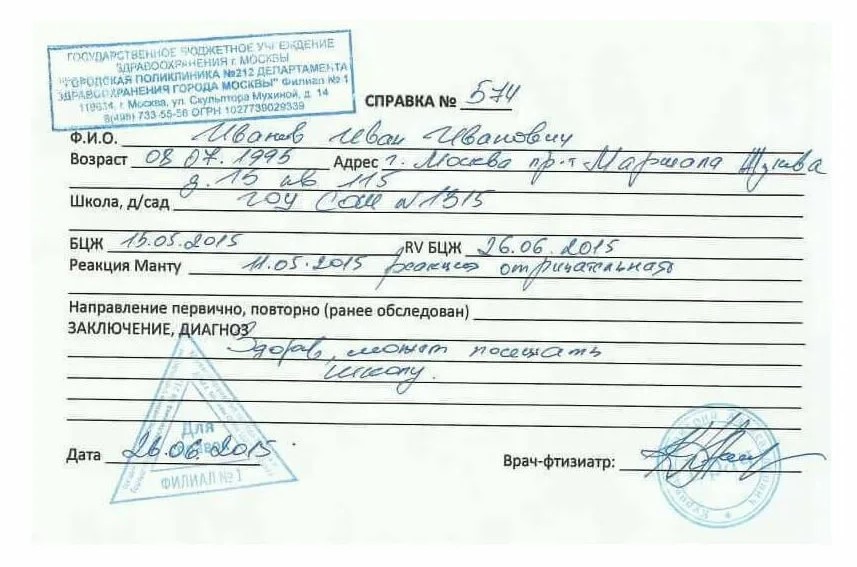 ГОСУДАРСТВЕННОЕ БЮДЖЕТНОЕ УЧРЕЖДЕНИЕ
ЗДРАВООХРАНЕНИЯ г. МОСКВЫ
"ГОРОДСКАЯ ПОЛИКЛИНИКА №212 ДЕПАРТАМЕНТА
ЗДРАВООХРАНЕНИЯ ГОРОДА МОСКВЫ" Филиал № 1
119634, г. Москва, ул. Скульптора Мухиной, д. 14
8(495) 733-55-56 ОГРН 1027739029339
СПРАВКА № 574
Ф.И.О. Иванов Иван Иванович
Возраст 08.07.1995 Адрес г. Москва пр-т Маршала Жукова
д. 15 кв 115
Школа, д/сад ГОУ СОШ №1315
БЦЖ 15.05.2015 RV БЦЖ 26.06.2015
Реакция Манту 11.05.2015 реакция отрицательная
Направление первично, повторно (ранее обследован)
ЗАКЛЮЧЕНИЕ, ДИАГНОЗ
Здоров, может посещать
школу.
Для
Дата 26.06.2015
Врач-фтизиатр:
ФИЛИАЛ №1